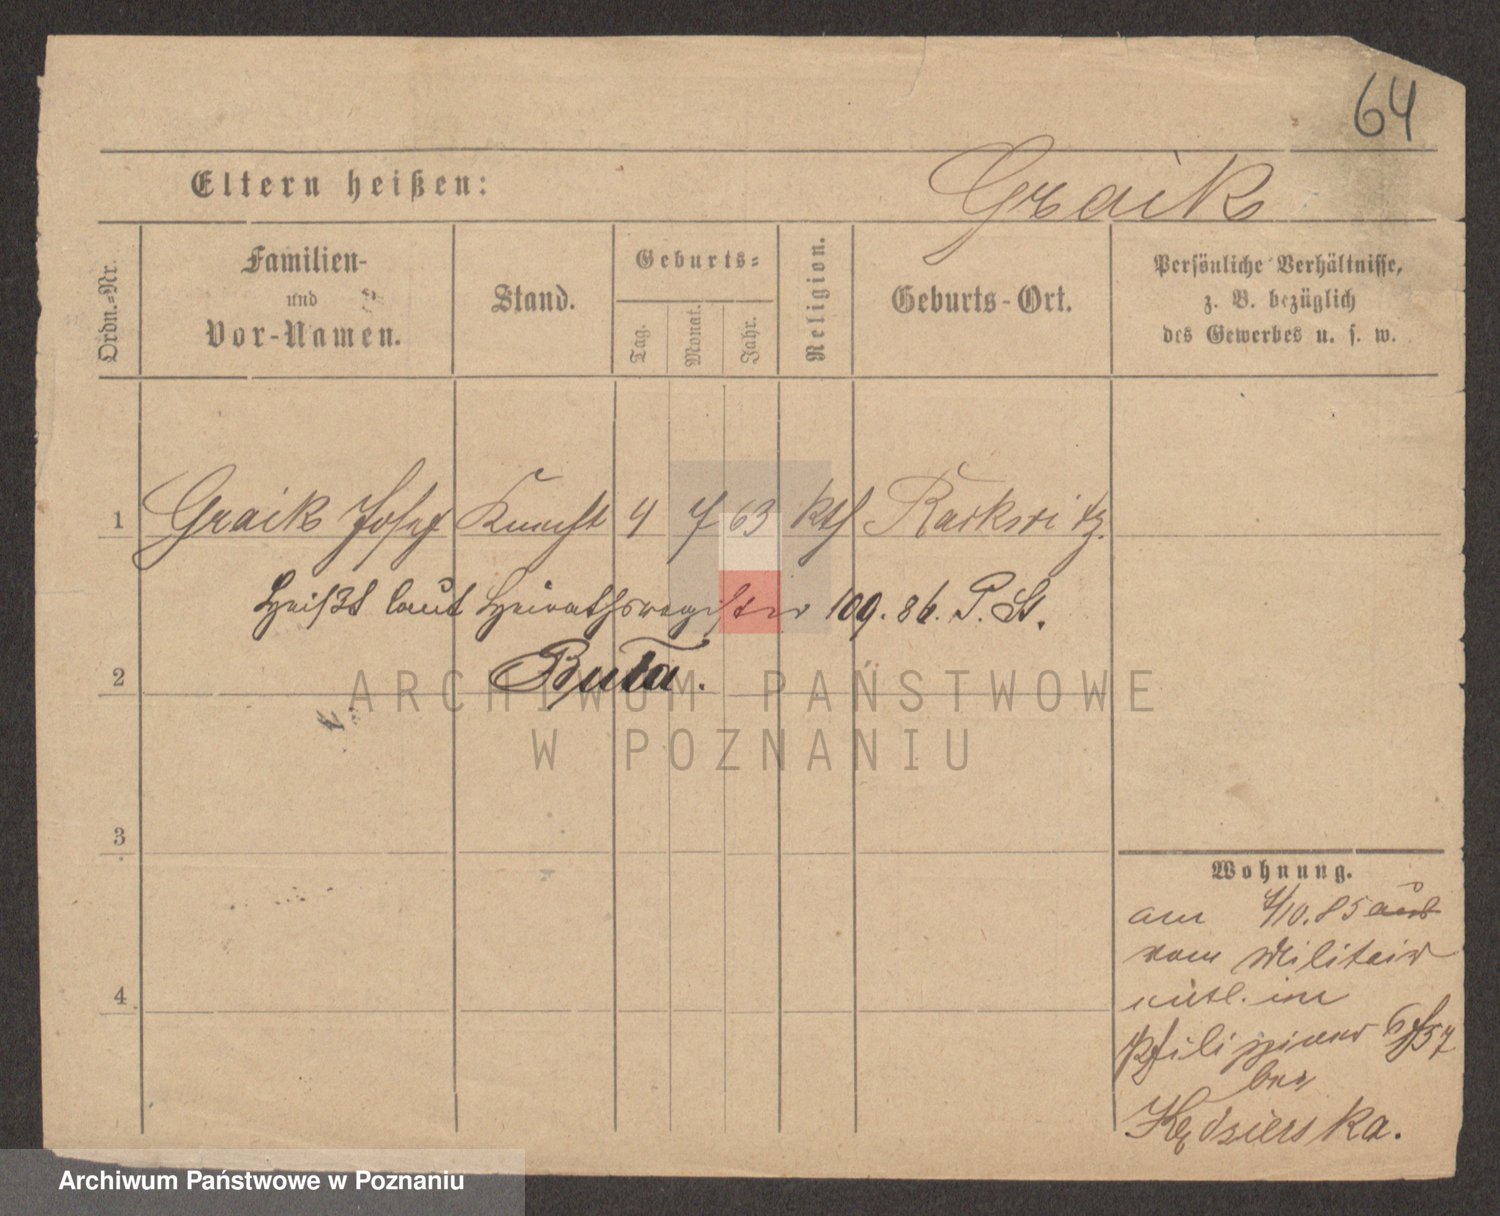 64
Eltern heißen:
Graik
Ordn.-Nr.
Familien-
und
Vor-Namen.
Stand.
Geburts-
Tag.
Monat.
Jahr.
Religion.
Geburts-Ort.
Persönliche Verhältnisse,
z. B. bezüglich
des Gewerbes u. s. w.
1 Graik Josef Knecht 4 7 63 kth Rackwitz.
heißt laut Heirathsregister 109. 86. P. St.
2 Buta.
ARCHIWUM PAŃSTWOWE
W POZNANIU
3
Wohnung.
am 1/10. 85 aus
vom Militair
entl. in
4
Philippiner 6/57
bei
Kędzierska.
Archiwum Państwowe w Poznaniu